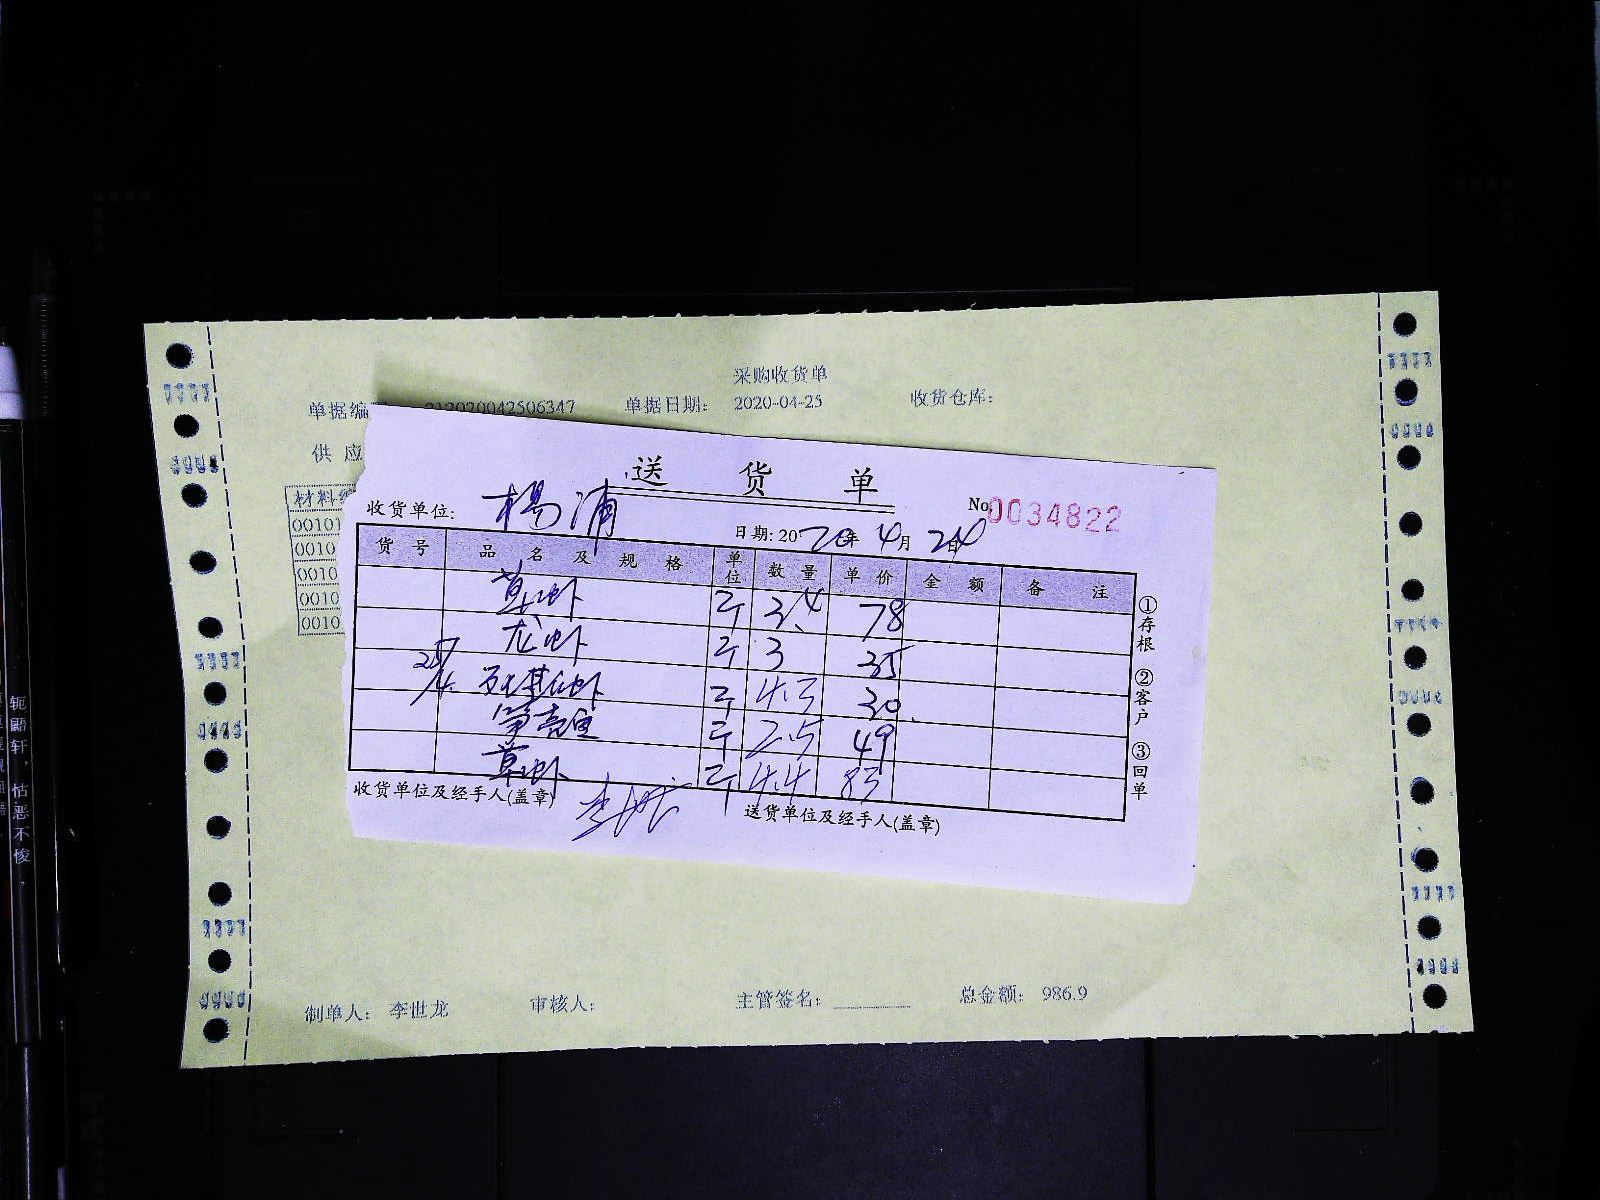 采购收货单
单据编 212020042506347 单据日期: 2020-04-25 收货仓库:
供 应
材料编
00101
0010
0010
0010
0010
送 货 单
收货单位: 杨浦 No 0034822
日期: 2020年 4月 24日
货号 品名及规格 单位 数量 单价 金额 备注
草虾 斤 3.4 78
龙虾 斤 3 35
25/4 基虾 斤 4.3 30
斤 2.5 49
草虾 斤 4.4 83
收货单位及经手人(盖章) 送货单位及经手人(盖章)
①存根 ②客户 ③回单
制单人: 李世龙 审核人: 主管签名: 总金额: 986.9